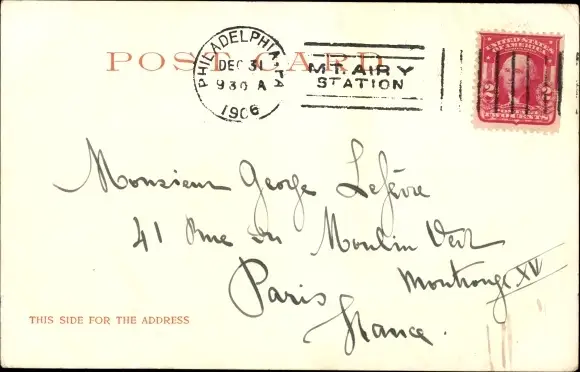 POST CARD
PHILADELPHIA, PA
DEC 31
930 A
1906
MT. AIRY
STATION
UNITED STATES
OF AMERICA
2 2
Monsieur George Lefèvre
41 Rue du Moulin Vert
Montrouge XV
Paris
France.
THIS SIDE FOR THE ADDRESS